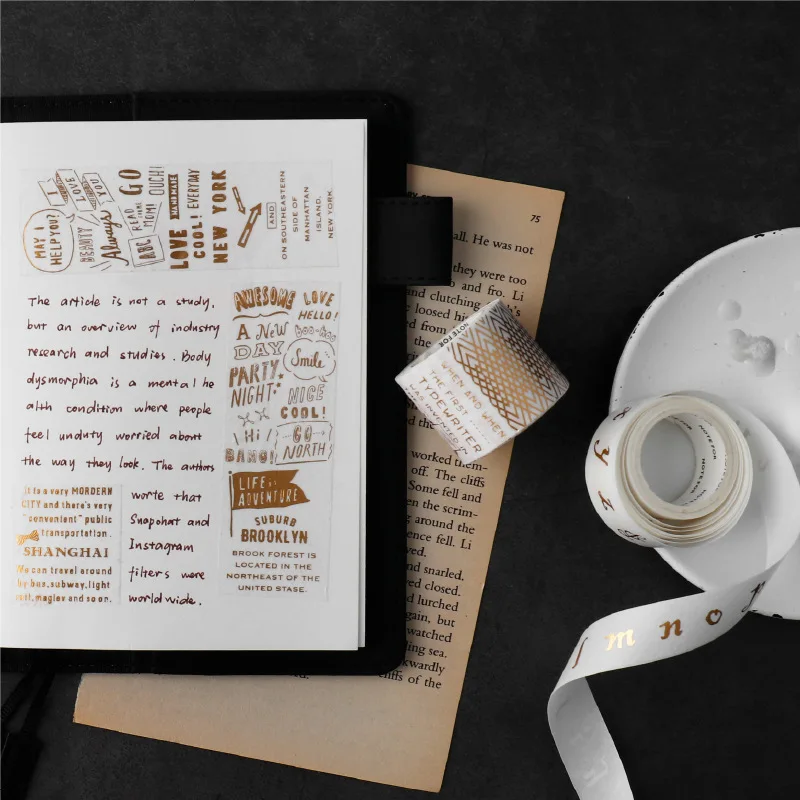 MAY I
HELP YOU?
I
LOVE
YOU
BEAUTY
Always
READ
MOM!
ABC
GO
OUCH!
HANDMADE
LOVE
COOL!
EVERYDAY
NEW YORK
AND
ON SOUTHEASTERN
SIDE OF
MANHATTAN
ISLAND,
NEW YORK.
The article is not a study,
but an overview of industry
research and studies. Body
dysmorphia is a mental he
alth condition where people
feel unduty worried about
the way they look. The authors
worte that
Snapohat and
Instagram
filters were
worldwide.
AWESOME LOVE
HELLO!
A NeW
DAY
boo-hoo
PARTY
NIGHT
Smile
NICE
COOL!
Hi
BANG!
GO
NORTH
LIFE is
ADVENTURE
SUBURB
BROOKLYN
BROOK FOREST IS
LOCATED IN THE
NORTHEAST OF THE
UNITED STASE.
It is a very MORDERN
CITY and there's very
"convenient" public
transportation.
SHANGHAI
We can travel around
by bus, subway, light
rail, maglev and so on.
75
all. He was not
they were too
and fro. Li
and clutching
loosed his
from
the
worked them-
off. The cliffs
Some fell and
en the scrim-
g around the
ence fell. Li
ved.
nd snarled,
ved closed.
lurched
gain, but
watched
ling sea.
kwardly
cliffs of the
NOTE FOR
WHEN AND WHEN
THE FIRST
TYPEWRITER
WAS INVENTED IN
NOTE FOR
NOTE FOR
y
z
m n o p